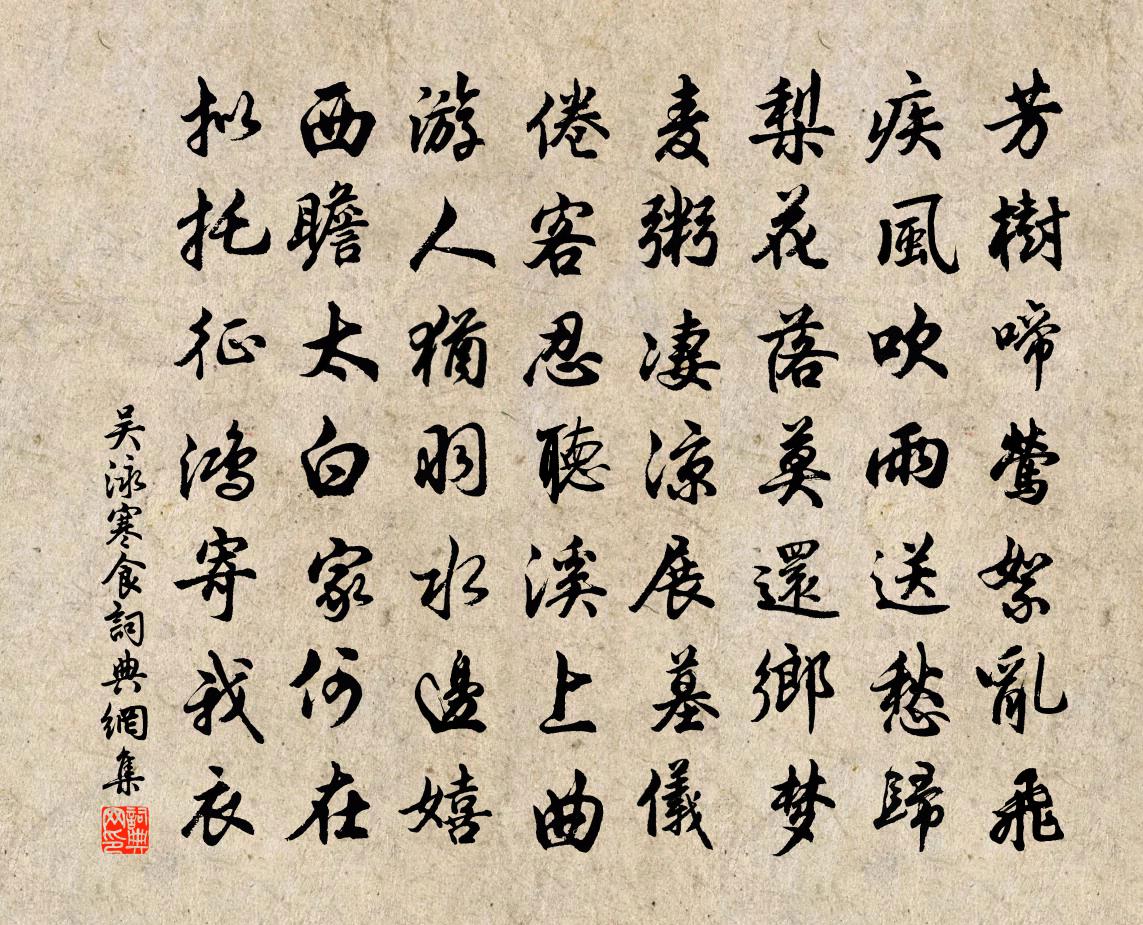 芳樹啼鶯絮亂飛
疾風吹雨送愁歸
梨花落莫還鄉梦
麦粥凄涼展墓儀
倦客忍聽溪上曲
游人猶明水邊嬉
西瞻太白家何在
拟托征鴻寄我衣
吴泳寒食詞典網集
詞典
网印